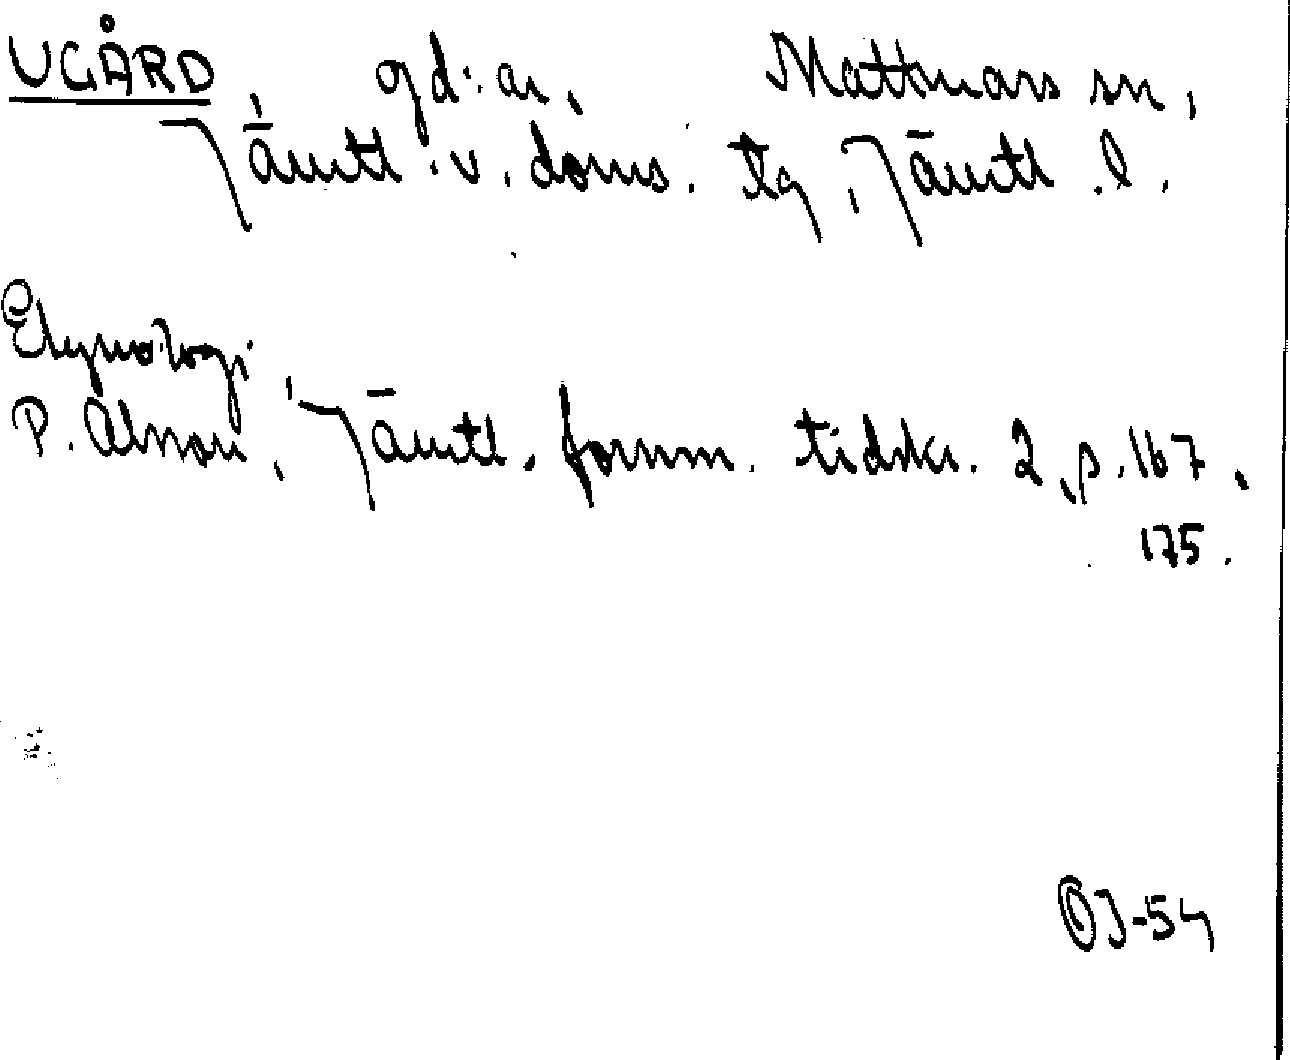 UGÅRD, gd:ar, Mattmars sn,
Jämtl. v. doms. tg, Jämtl. l.
Etymologi
P. Olsson, Jämtl. fornm. tidskr. 2, s. 167,
175.
OJ-54